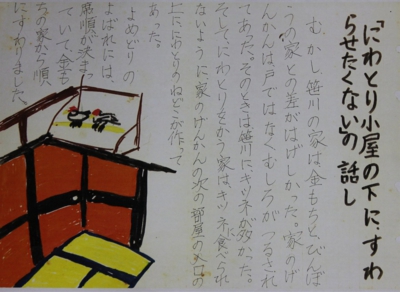 「にわとり小屋の下に、すわ
らせたくない」の話し
むかし笹川の家は金もちと、びんぼ
うの家との差がはげしかった。家のげ
んかんは戸ではなくむしろがつるされ
てあった。そのときは笹川にキツネが多かった。
そしてにわとりをかう家は、キツネに食べられ
ないように家のげんかんの次の部屋の
上ににわとりのねどこが作って
あった。
よめどりの
よばれには、
席順が決まっ
ていて、金も
ちの家から順
にすわりました。